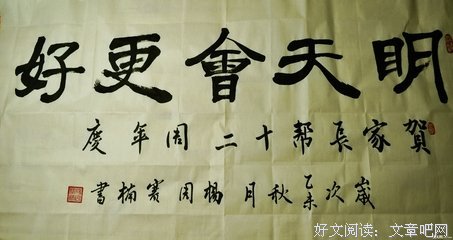 明天會更好
贺家長帮十二周年慶
歲次乙未秋月楊周楠書
好文阅读：文章吧网